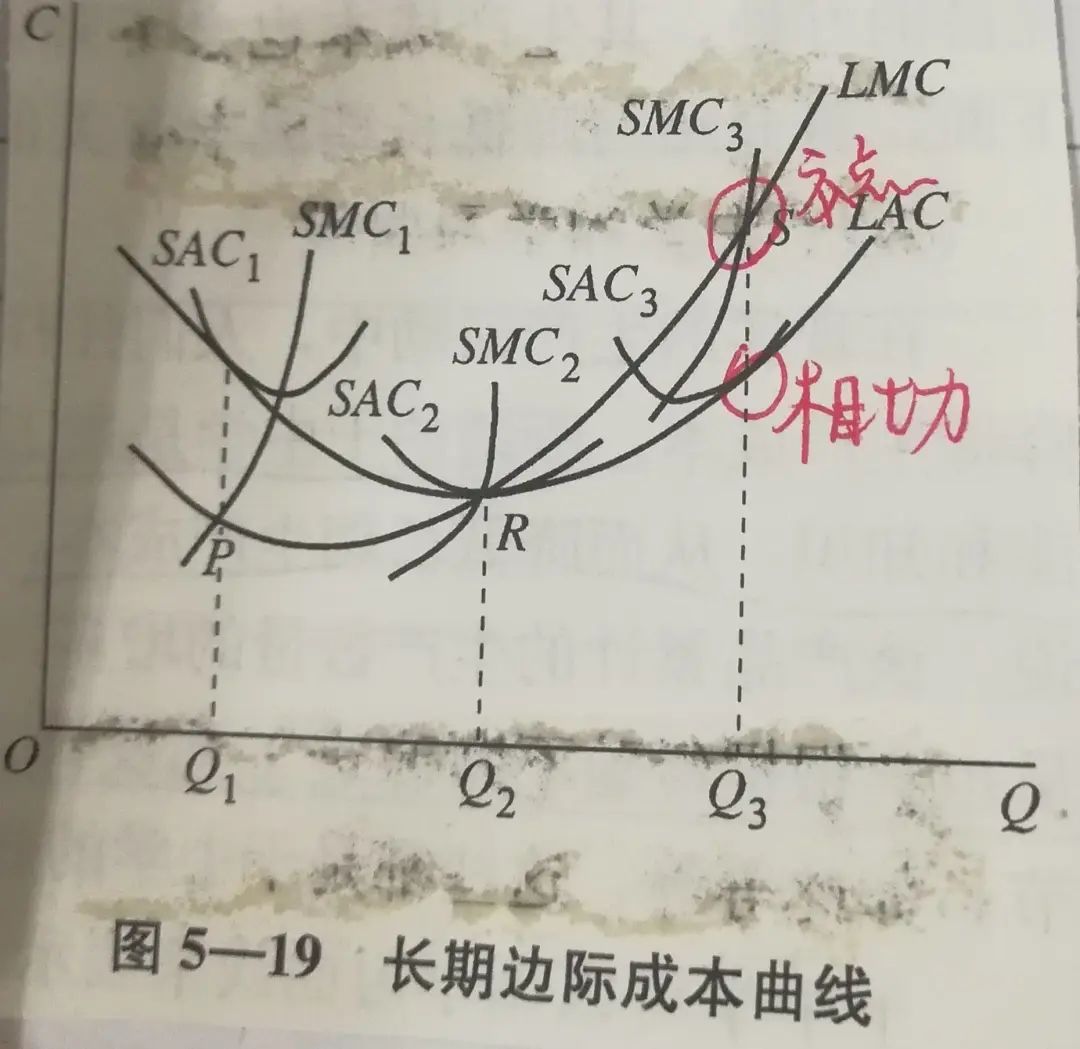 C
LMC
SMC₃
交点
SMC₁
S
LAC
SAC₁
SAC₃
SMC₂
SAC₂
相切
R
P
O
Q₁
Q₂
Q₃
Q
图 5—19 长期边际成本曲线